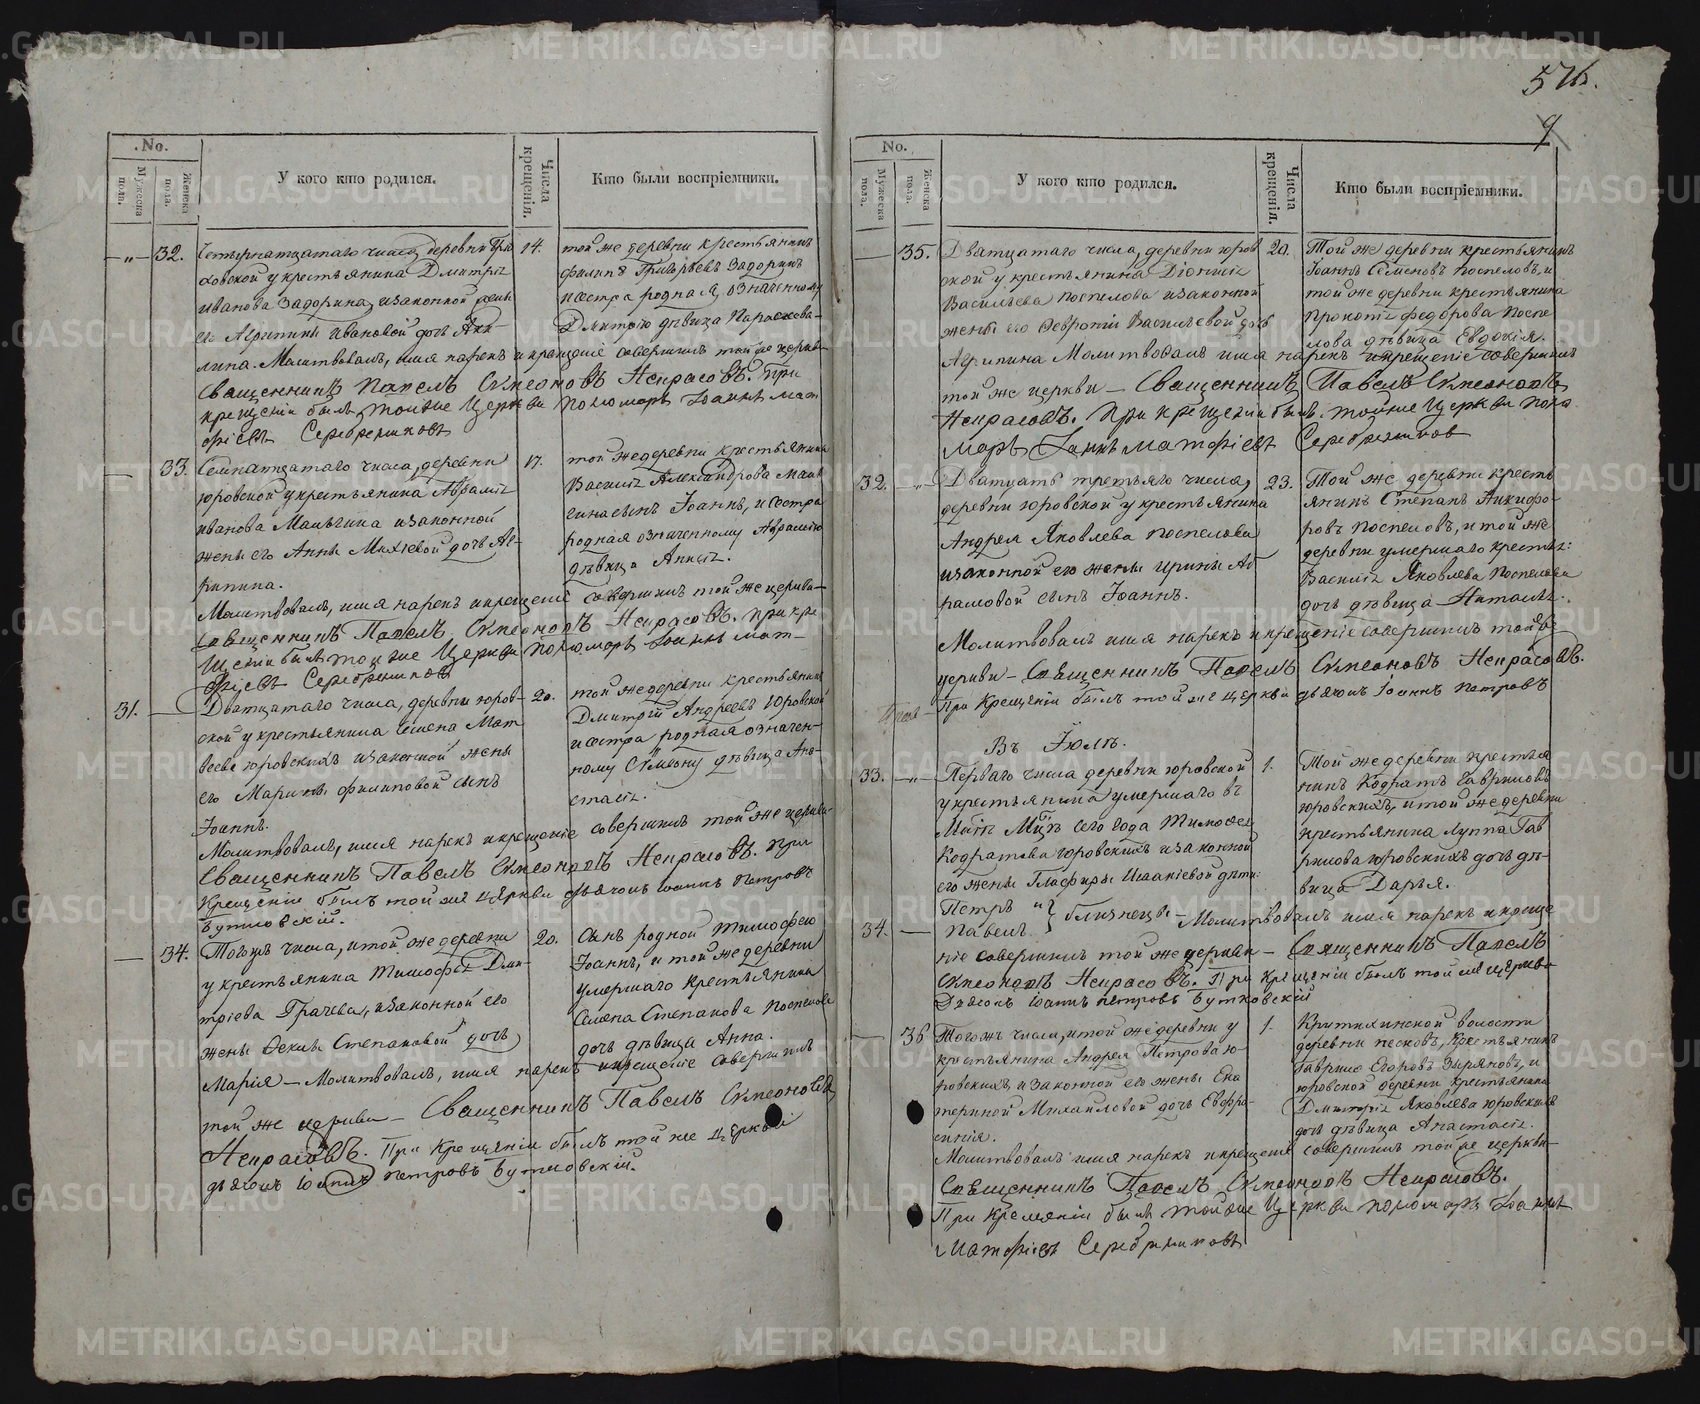 576.
9
No.
Мужеска пола.
Женска пола.
У кого кто родился.
Числа крещенія.
Кто были воспріемники.
—„— 32. Четырнатцатаго числа, деревни
ковской у крестьянина Дмитрія
Иванова Задорина, изаконной жены
его Агрипины Ивановой дочь Аки-
лина. Молитвовалъ, имя нарекъ и крещеніе совершилъ той же церкви—
Священникъ Павелъ Симеоновъ Некрасовъ. При
крещеніи былъ тойже Церкви Пономарь Іоаннъ Мат
фіевъ Серебрениковъ
14. той же деревни крестьянинъ
Филипъ Григорьевъ Задоринъ
и сестра родная, означенному
Дмитрію дѣвица Параскева—
— 33. Семнатцатаго числа, деревни
юровской у крестьянина Аврамія
Иванова Малыгина изаконной
жены его Анны Михѣевой дочь Аг-
рипина.
Молитвовалъ, имя нарекъ икрещеніе совершилъ той же церкви—
Священникъ Павелъ Симеоновъ Некрасовъ. При кре
щеніи былъ тойже Церкви Пономарь Іоаннъ Мат—
фіевъ Серебрениковъ
17. той жедеревни крестьянина
Василія Александрова Малы
гина сынъ Іоаннъ, и сестра
родная означенному Аврамію
дѣвица Анисія.
31. — Дватцатаго числа, деревни юров-
ской у крестьянина Симена Мат
веева юровскихъ изаконной жены
его Марины Филиповой сынъ
Іоаннъ.
Молитвовалъ, имя нарекъ икрещеніе совершилъ той же церкви—
Священникъ Павелъ Симеоновъ Некрасовъ. При
Крещеніи былъ той же церкви дьячокъ Іоаннъ Петровъ
Бутковскій.
20. той же деревни крестьянинъ
Дмитрій Андреевъ Юровской
и сестра родная означен-
ному Симеону дѣвица Ана-
стасія.
— 34. Тогожъ числа, итой же деревни
у крестьянина Тимофея Дми-
тріева Грачева, изаконной его
жены Феклы Степановой дочь
Марія— Молитвовалъ, имя нарекъ икрещеніе совершилъ
той же церкви— Священникъ Павелъ Симеоновъ
Некрасовъ. При Крещеніи былъ той же церкви
дьячокъ Іоаннъ Петровъ Бутковскій.
20. Сынъ родной Тимофею
Іоаннъ, и той же деревни
умершаго крестьянина
Семена Степанова Поспелова
дочь дѣвица Анна.
No.
Мужеска пола.
Женска пола.
У кого кто родился.
Числа крещенія.
Кто были воспріемники.
— 35. Дватцатаго числа, деревни юров
ской у крестьянина Діонисія
Васильева Поспелова изаконной
жены его Февроніи Васильевой дочь
Агрипина Молитвовалъ имя нарекъ икрещеніе совершилъ
той же церкви— Священникъ Павелъ Симеоновъ
Некрасовъ. При крещеніи былъ тойже Церкви Поно
марь Іоаннъ Матфіевъ Серебрениковъ
20. Той же деревни крестьянинъ
Іоаннъ Семеновъ Поспеловъ, и
той же деревни крестьянина
Прокопія Федорова Поспе
лова дѣвица Евдокія.
32. —„— Дватцать третьяго числа,
деревни юровской у крестьянина
Андрея Яковлева Поспелова
изаконной его жены Ирины Аб
рамовой сынъ Іоаннъ.
Молитвовалъ имя нарекъ икрещеніе совершилъ той же
церкви— Священникъ Павелъ Симеоновъ Некрасовъ.
При Крещеніи былъ той же церкви дьячокъ Іоаннъ Петровъ
23. Той же деревни кресть
янинъ Степанъ Никифо-
ровъ Поспеловъ, и той же
деревни умершаго крестья:
Василія Яковлева Поспелова
дочь дѣвица— Наталья.
Въ Іюлѣ.
33. —„— Перваго числа деревни юровской
у крестьянина умершаго въ
сего года Тимофея
Кодратова юровскихъ изаконной
его жены Глафиры Исаакіевой дѣти:
Петръ и
34. — Павелъ } близнецы— Молитвовалъ имя нарекъ икреще
ніе совершилъ той же церкви— Священникъ Павелъ
Симеоновъ Некрасовъ. При Крещеніи былъ той же церкви
Дьячокъ Іоаннъ Петровъ Бутковскій
1. Той же деревни крестья
нинъ Кодратъ Гавриловъ
юровскихъ, итой же деревни
крестьянина Луппа Гав
рилова юровскихъ дочь дѣ-
вица Дарья.
— 36 Тогожъ числа, итой же деревни у
крестьянина Андрея Петрова ю-
ровскихъ изаконной его жены Ека
терины Михайловой дочь Евфро-
синія.
Молитвовалъ имя нарекъ икрещеніе совершилъ той же церкви—
Священникъ Павелъ Симеоновъ Некрасовъ.
При Крещеніи былъ тойже Церкви пономарь Іоаннъ
Матфіевъ Серебрениковъ
1. Крутихинской волости
деревни песковъ, крестьянинъ
Гаврило Егоровъ Зыряновъ, и
юровской деревни крестьянина
Дмитрія Яковлева юровскихъ
дочь дѣвица Анастасія.
METRIKI.GASO-URAL.RU